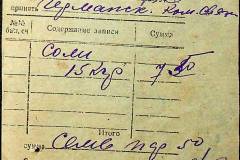 принять Чермянск. Ком. Связи
№№ бал. сч. Содержание записи Сумма
Соли
15 кгр 7 50
Итого
сумма Семь пдр 50